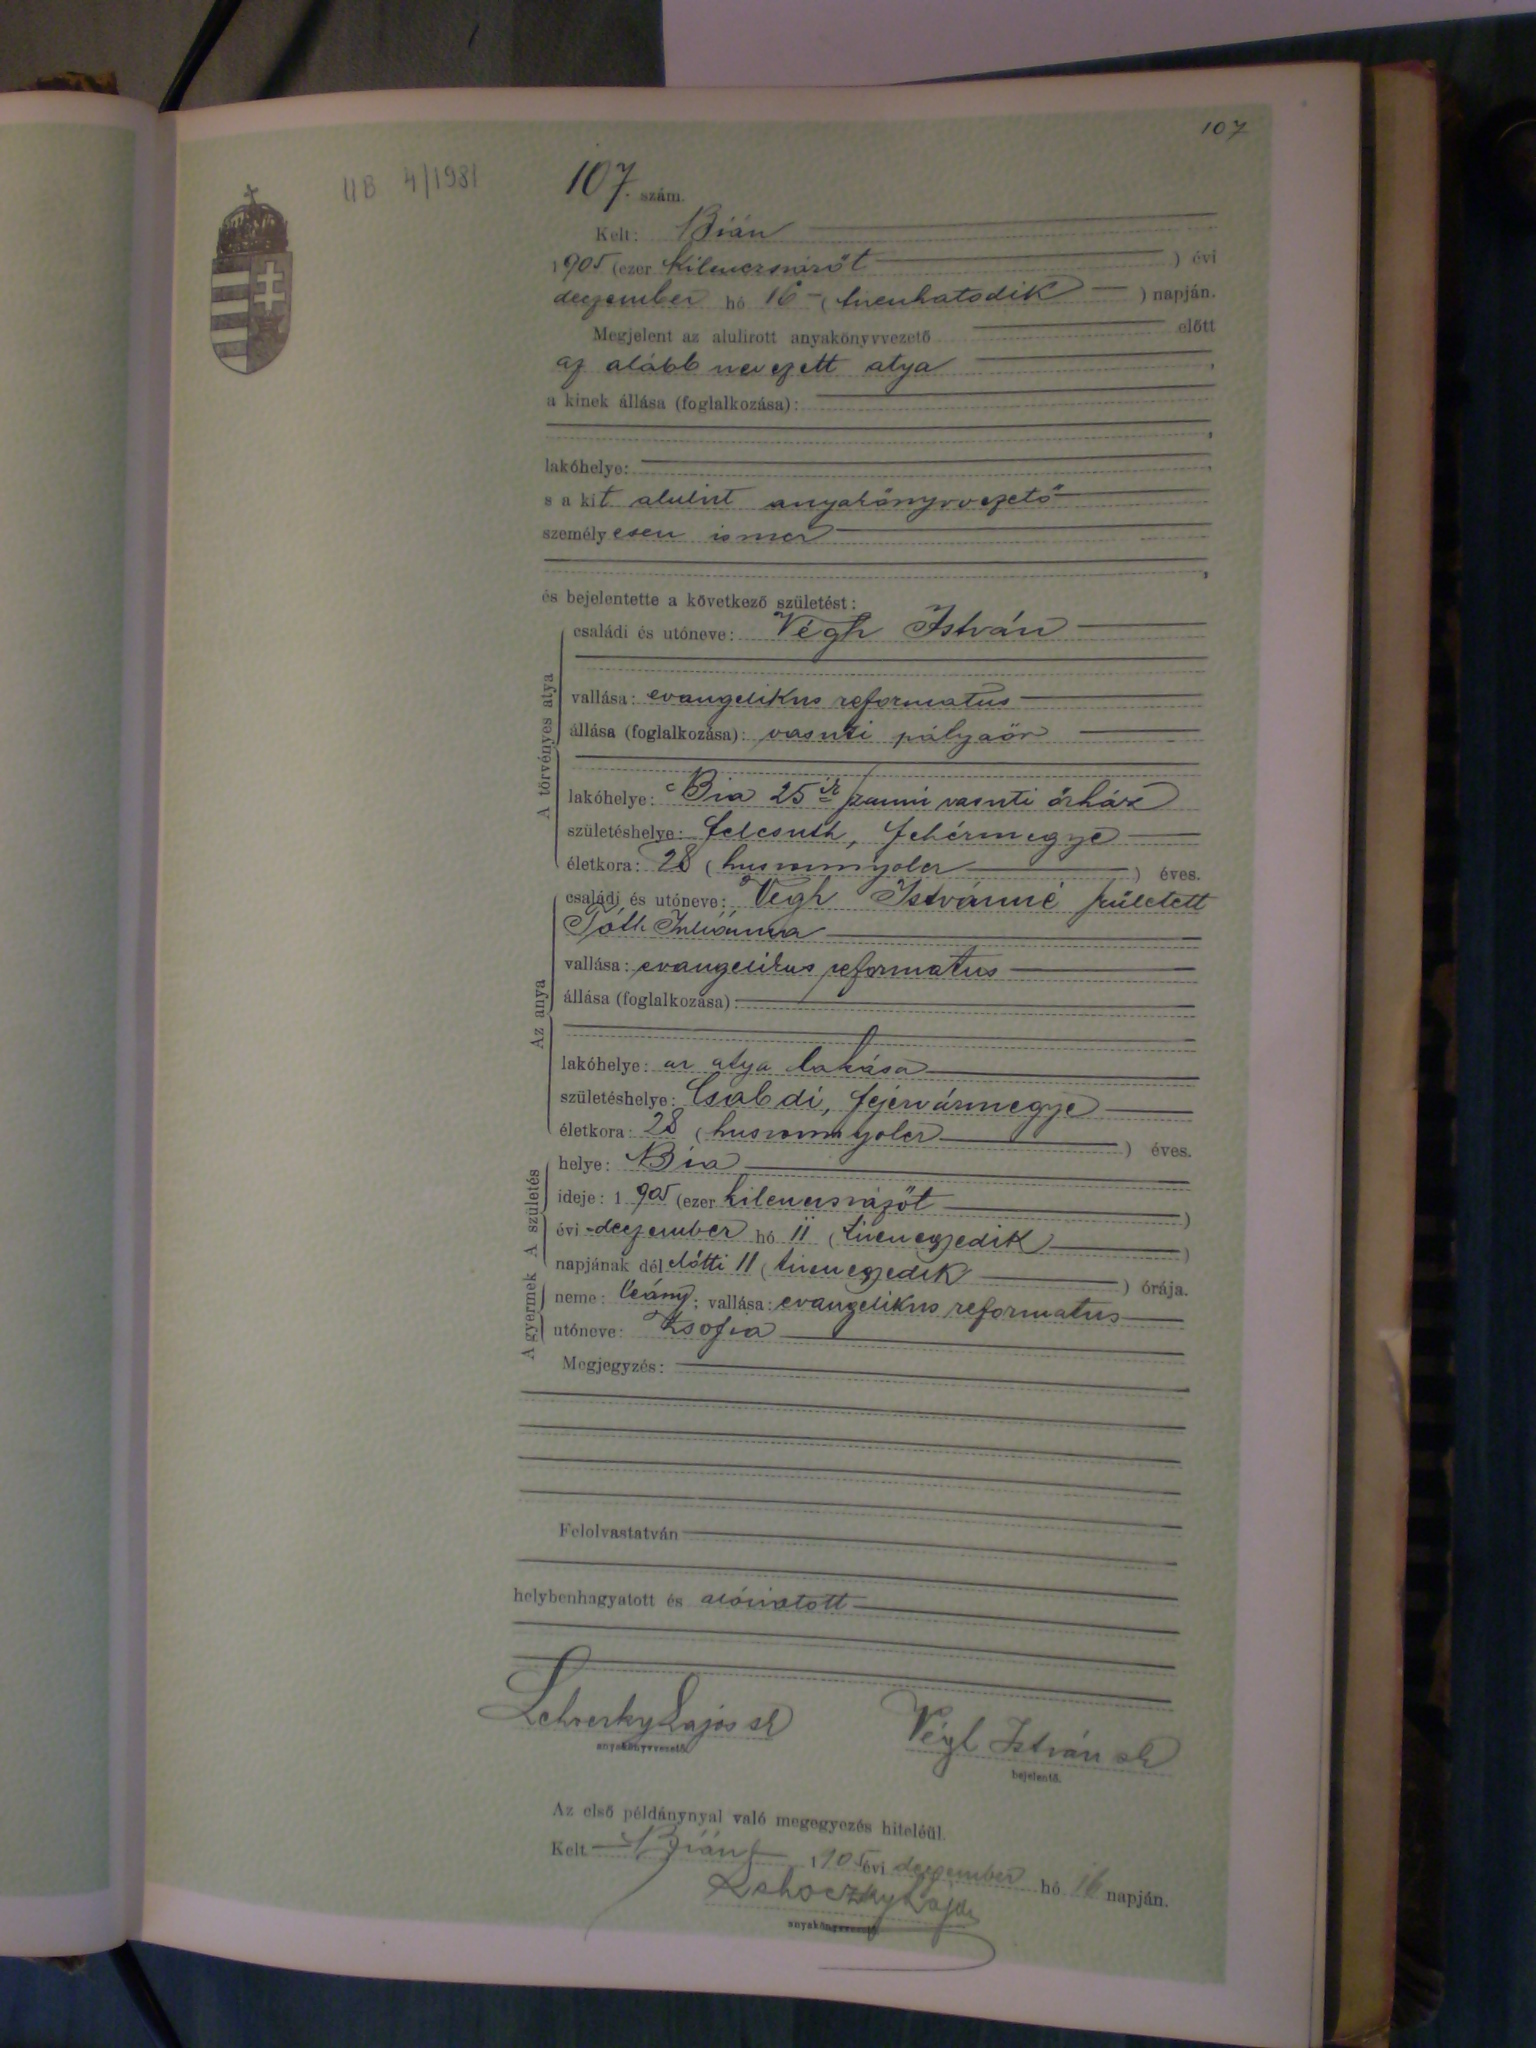 107
UB 4/1981
107. szám.
Kelt: Bián
1905 (ezer kilenczszázöt ) évi
deczember hó 16 (tizenhatodik ) napján.
Megjelent az alulirott anyakönyvvezető előtt
az alább nevezett atya ,
a kinek állása (foglalkozása):
,
lakóhelye:
s a kit alulirt anyakönyvvezető
személyesen ismer
,
és bejelentette a következő születést:
A törvényes atya
családi és utóneve: Végh István
vallása: evangelikus reformatus
állása (foglalkozása): vasuti pályaőr
lakóhelye: Bia 25ik számú vasuti őrház
születéshelye: Felcsuth, Fehérmegye
életkora: 28 (huszonnyolcz ) éves.
Az anya
családi és utóneve: Végh Istvánné született
Tóth Juliánna
vallása: evangelikus reformatus
állása (foglalkozása):
lakóhelye: az atya lakása
születéshelye: Csabdi, Fejérvármegye
életkora: 28 (huszonnyolcz ) éves.
A születés
helye: Bia
ideje: 1905 (ezer kilenczszázöt )
évi deczember hó 11 (tizenegyedik )
napjának dél előtti 11 (tizenegyedik ) órája.
A gyermek
neme: leány; vallása: evangelikus reformatus
utóneve: Zsofia
Megjegyzés:
Felolvastatván
helybenhagyatott és aláiratott
Lajos sk Végh István sk
anyakönyvvezető. bejelentő.
Az első példánynyal való megegyezés hiteléül.
Kelt Bián, 1905 évi deczember hó 16 napján.
Lajos
anyakönyvvezető.